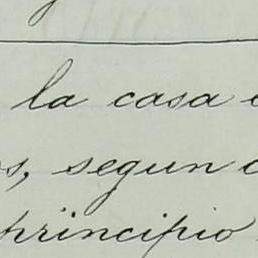 la casa
os, segun
principio